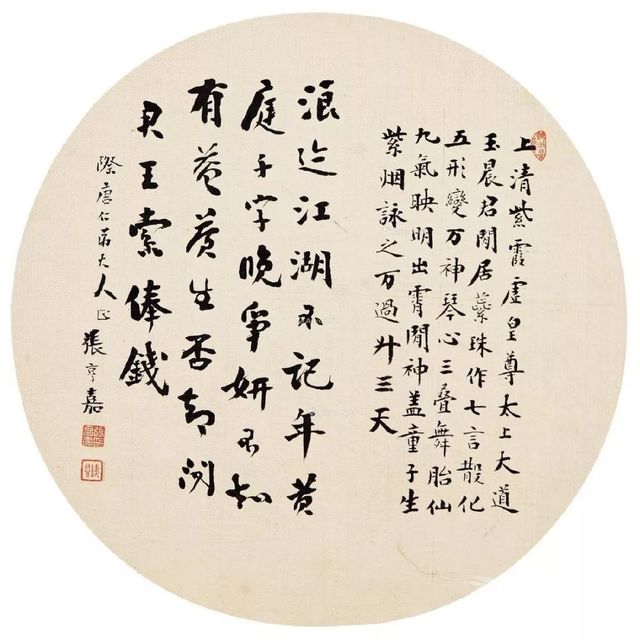 上清紫霞虛皇尊太上大道
玉晨君閒居蘂珠作七言散化
五形變万神琴心三叠舞胎仙
九氣映明出霄閒神盖童子生
紫烟詠之万過升三天
浪迹江湖不記年黄
庭千字晚爭妍不知
有益養生否却問
君王索俸錢
際唐仁弟大人正張亨嘉